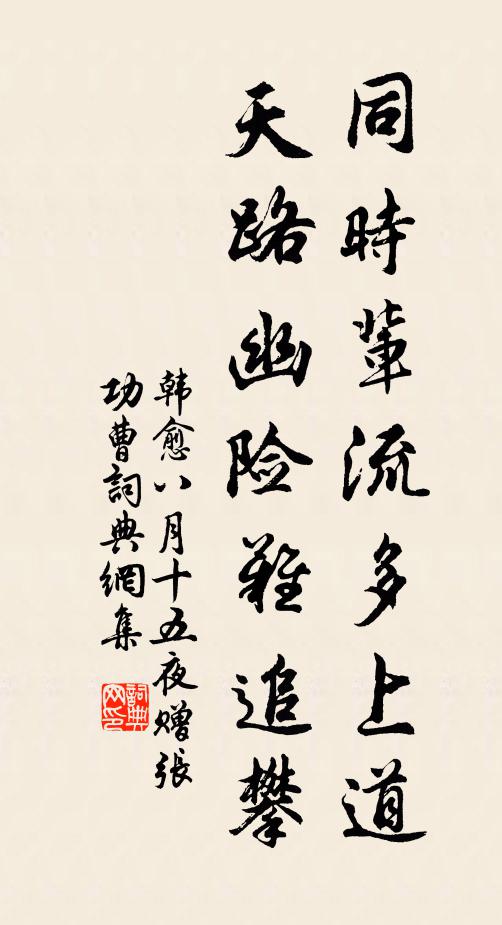 同時輩流多上道
天路幽险難追攀
韩愈八月十五夜赠張
功曹詞典網集
詞典
网印